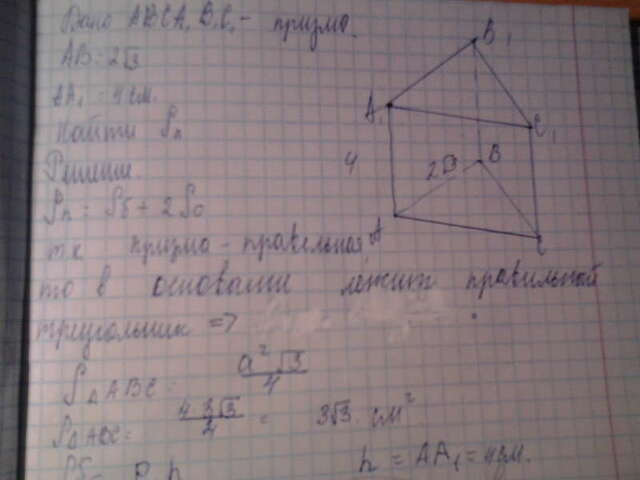 Дано ABCA₁B₁C₁ - призма.
AB = 2√3
AA₁ = 4 см.
Найти Sп
Решение.
Sп = Sб + 2So
т.к призма - правельная,
то в основании лежит правельный
треугольник =>
S△ABC = a²√3/4
S△ABC = 4·3√3/4 = 3√3 см²
Sб = P·h
h = AA₁ = 4 см.
B₁
A₁
C₁
4
2√3
B
A
C